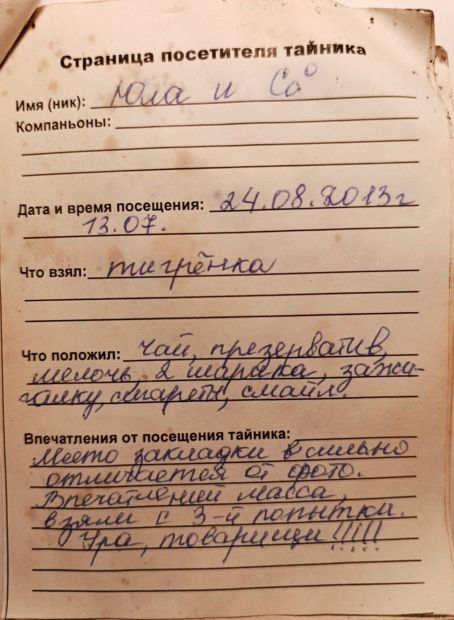 Страница посетителя тайника
Имя (ник): Юла и Со
Компаньоны:
Дата и время посещения: 24.08.2013г
13.07.
Что взял: тигрёнка
Что положил: чай, презерватив,
мелочь, 2 шарика, зажи-
галку, сигареты, смайл.
Впечатления от посещения тайника:
Место закладки сильно
отличается от фото.
Впечатлений масса,
взяли с 3-й попытки.
Ура, товарищи!!!!!